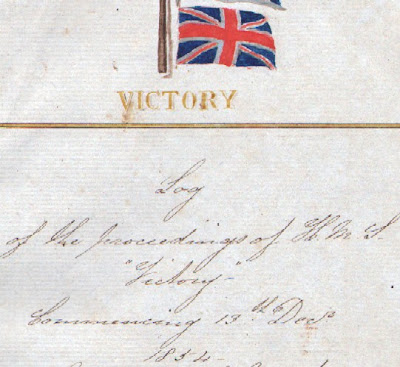 VICTORY
Log
of the proceedings of H.M.S.
"Victory"
Commencing 13th Decr
1854